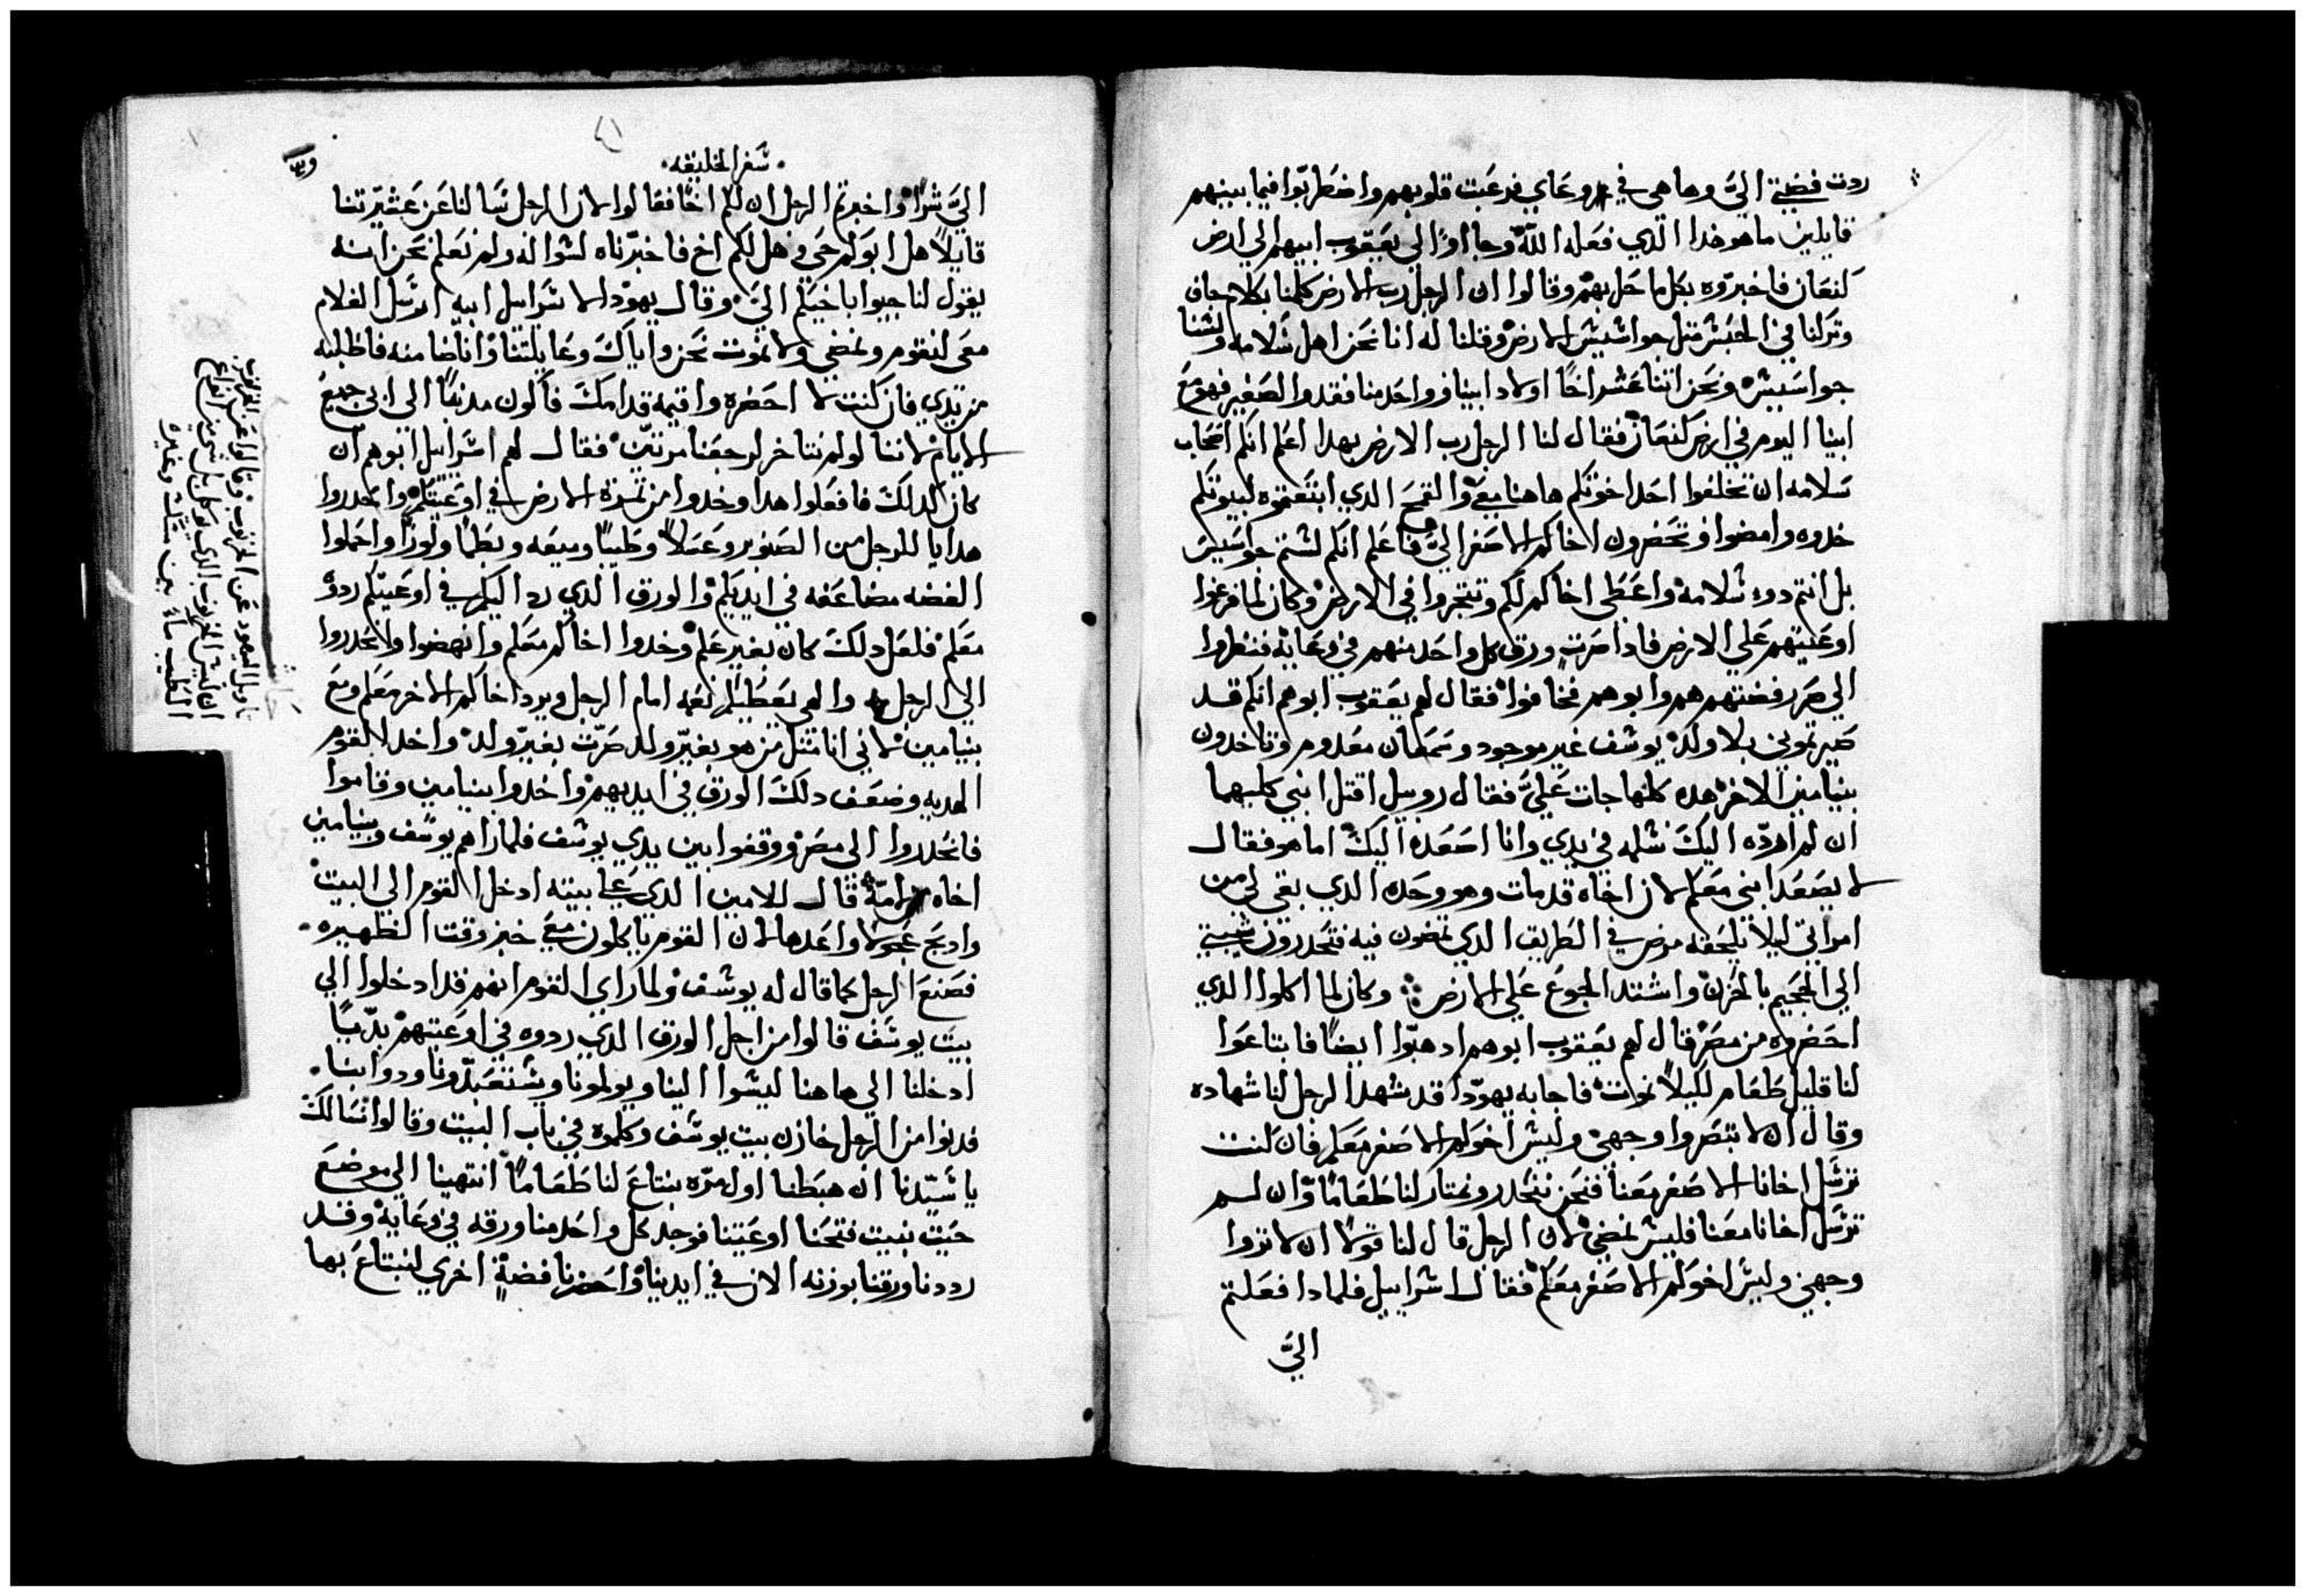 ردت فضتي اليَّ وها هي في وعاي فرعبت قلوبهم واضطربوا فيما بينهم
قايلين ما هو هدا الدي فعله الله وجااوا الي يعقوب ابيهم الي ارض
كنعان فاخبروه بكل ما حل بهم وقالوا ان الرجل رب الارض كلمنا بكلام جاف
وتركنا في الحبش متل جواشيش الارض وقلنا له انا نحن اهل سلامه ولسنا
جواسيس ونحن اتنا عشر اخًا اولاد ابينا وواحد منا فقد والصغير فهو مع
ابينا اليوم في ارض كنعان فقال لنا الرجل رب الارض بهدا اعلم انكم اصحاب
سلامه ان تخلفوا احد اخوتكم هاهنا معي والقمح الدي ابتعتموه لبيوتكم
خدوه وامضوا وتحضرون اخاكم الاصغر اليَّ فاعلم انكم لستم جواسيس
بل انتم دوه سلامه واعطي اخاكم لكم وتتجروا في الارض وكان لما فرغوا
اوعيتهم علي الارض فادا صرت ورق كل واحد منهم في وعايه فنظروا
الي صرر فضتهم هم وابوهم فخافوا فقال لهم يعقوب ابوهم انكم قد
صيرتموني بلا ولد يوشف غير موجود وسمعان معدوم وتاخدون
بنيامين الاخر هده كلها جات عليَّ فقال روبيل اقتل ابني كليهما
ان لم اردّه اليك سلمه في يدي وانا اصعده اليك اما هو فقال
لا يصعد ابني معكم لان اخاه قد مات وهو وحده الدي بقي لي من
امراتي ليلا يلحقه مرض في الطريق الدي تمضون فيه فتحدرون شيبتي
الي الجحيم بالحزن واشتد الجوع علي الارض وكان لما اكلوا الدي
احضروه من مصر قال لهم يعقوب ابوهم ادهبوا ايضًا فابتاعوا
لنا قليل طعام لكيلا نموت فاجابه يهودا قد شهد الرجل لنا شهاده
وقال ان لا تبصروا وجهي وليس اخوكم الاصغر معكم فان كنت
ترسل اخانا الاصغر معنا فنحن ننحدر ونمتار لنا طعامًا وان لم
ترسل اخانا معنا فليس نمضي لان الرجل قال لنا قولا ان لا تروا
وجهي وليس اخوكم الاصغر معكم فقال اسراييل فلمادا فعلتم
اليَّ
سفر الخليقه
اليَّ شرًا واخبرتم الرجل ان لكم اخًا فقالوا لان الرجل سالنا عن عشيرتنا
قايلاً هل ابوكم حي وهل لكم اخ فاخبرناه لسواله ولم نعلم نحن انه
يقول لنا جيبوا باخيكم اليَّ وقال يهودا لاسراييل ابيه ارسل الغلام
معي لنقوم ونمضي ولا نموت نحن واياك وعايلتنا وانا ضامنه فاطلبه
من يدي فان كنت لا احضره واقيمه قدامك فاكون مدنبًا الي ابي جميع
الايام لاننا لو لم نتاخر لرجعنا مرتين فقال لهم اسراييل ابوهم ان
كان كدلك فافعلوا هدا وخدوا من تمرة الارض في اوعيتكم وانحدروا
هدايا للرجل من الصنوبر وعسلاً وطيبًا وميعه وبطمًا ولوزًا واحملوا
الفضه مضاعفه في ايديكم والورق الدي رد اليكم في اوعيتكم ردوه
معكم فلعل دلك كان بغير علم وخدوا اخاكم معكم وانهضوا وانحدروا
الي الرجل والهي يعطيكم نعمه امام الرجل ويرد اخاكم الاخر معكم ومع
بنيامين لاني انا متل من هو بغير ولد صرت بغير ولد واخد القوم
الهديه وضعف دلك الورق في ايديهم واخدوا بنيامين وقاموا
فانحدروا الي مصر ووقفوا بين يدي يوشف فلما راهم يوسف وبنيامين
اخاه لامّه قال للامين الدي علي بيته ادخل القوم الي البيت
وادبح عجولا واعدها لان القوم ياكلون معي خبز وقت الظهيره
فصنع الرجل كما قال له يوشف ولما راي القوم انهم قد ادخلوا الي
بيت يوشف قالوا من اجل الورق الدي ردوه في اوعيتهم بديًا
ادخلنا الي هاهنا ليشوا الينا ويولمونا ويشتعبدونا ودوابنا
فدنوا من الرجل خازن بيت يوشف وكلموه في باب البيت وقالوا نسالك
يا سيدنا ان هبطنا اول مره نبتاع لنا طعامًا انتهينا الي موضع
حيت نبيت فتحنا اوعيتنا فوجد كل واحد منا ورقه في وعايه وقد
رددنا ورقنا بوزنه الان في ايدينا واحضرنا فضةٍ اخري لنبتاع بها